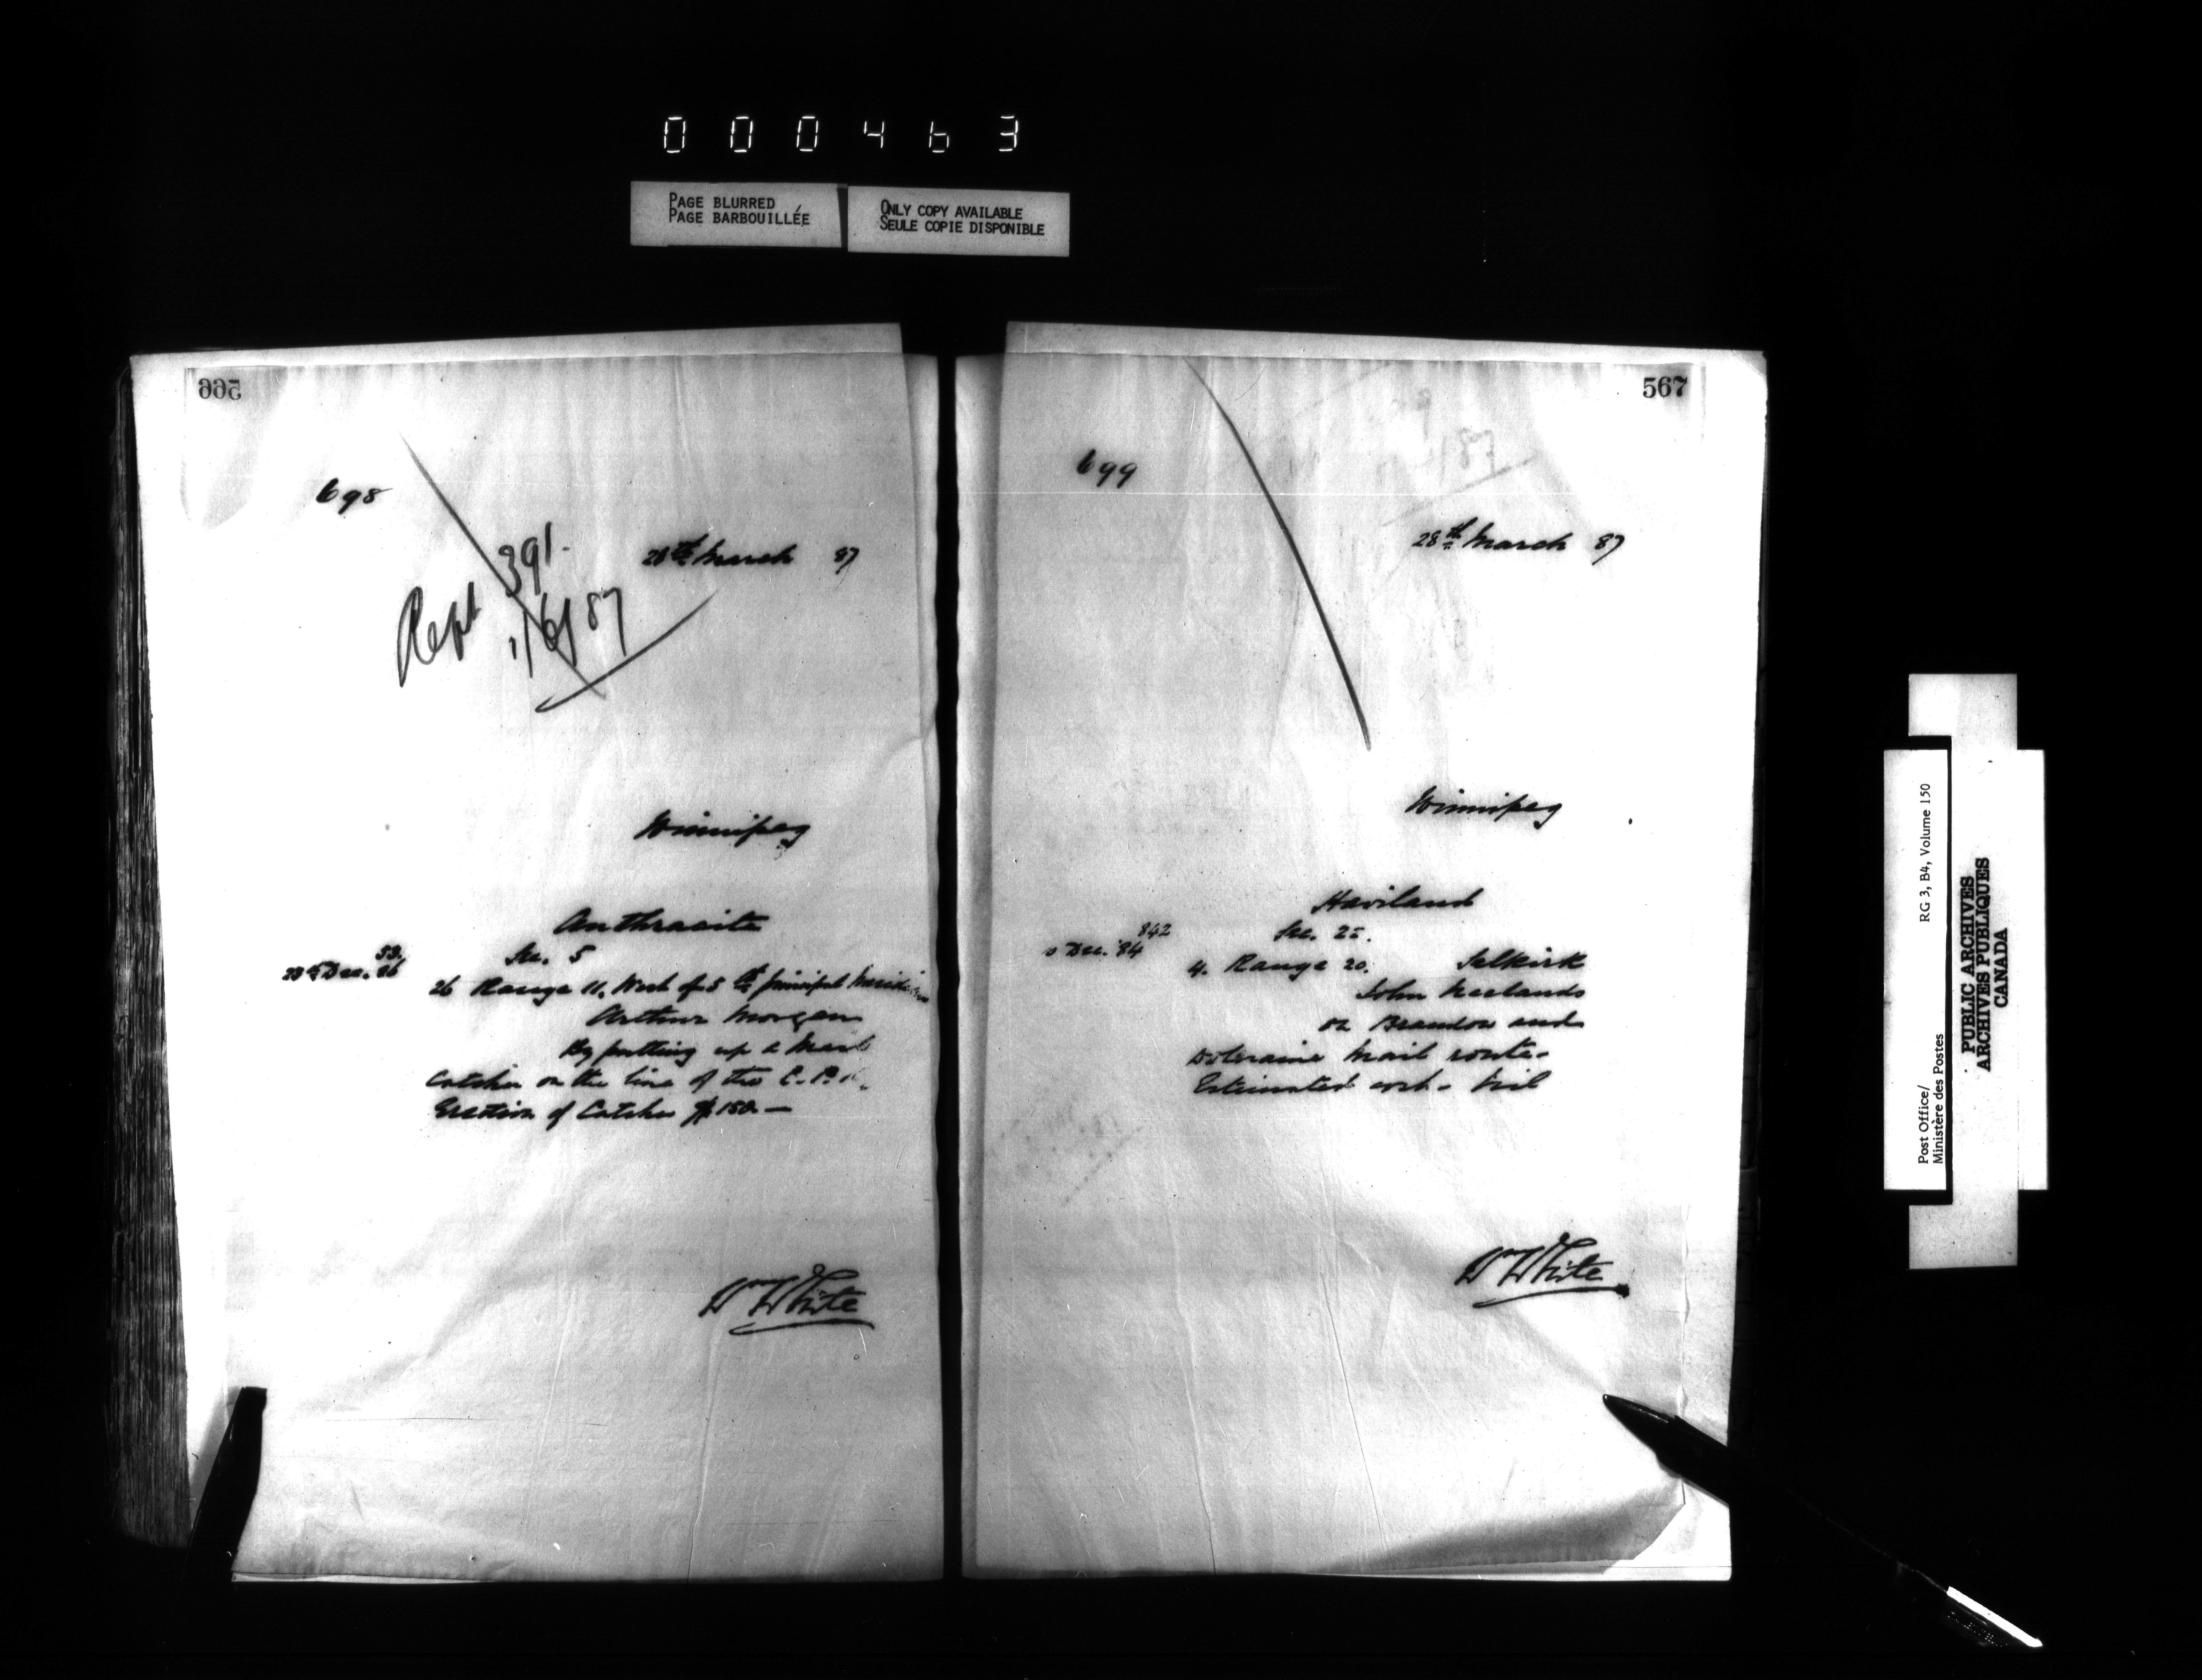 000463
PAGE BLURRED
PAGE BARBOUILLÉE
ONLY COPY AVAILABLE
SEULE COPIE DISPONIBLE
566
698
28th March 87
Rept 391.
1/6/87
Winnipeg
Anthracite
53.
23rd Dec. 86
Sec. 5
26 Range 11. West of 5th principal Meridian
Arthur Morgan
By putting up a Mail
Catcher on the line of the C.P.R.
Erection of Catcher $150.—
Wm White
567
699
28th March 87
Winnipeg
Haviland
842
Dec. 84
Sec. 25.
4. Range 20. Selkirk
John
on Brandon and
Deloraine Mail route.
Estimated cost. Nil
Wm White
Post Office/ RG 3, B4, Volume 150
Ministère des Postes
PUBLIC ARCHIVES
ARCHIVES PUBLIQUES
CANADA